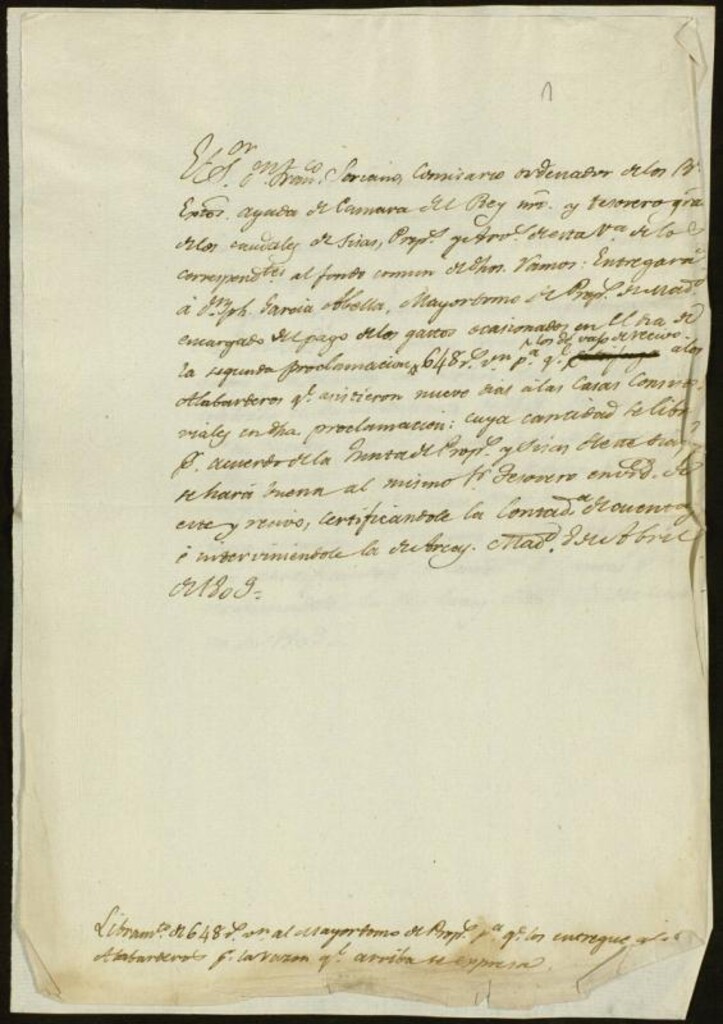 El Sor. Dn. Franco. Soriano, Comisario ordenador de los Rs.
Extos. ayuda de Camara del Rey nro. y tesorero gral
de los caudales de Sisas, Props. y Arvs. de esta Va. de los
correspondtes al fondo comun de dhos. Ramos: Entregará
á Dn. Jph. Garcia Abella, Mayordomo de Props. de Madd.
encargado del pago de los gastos ocasionados en el dia de
la segunda proclamacion, 648 rs. vn. pa. qe. los de vajo de recivo a los
Alabarderos qe. asistieron nueve dias á las Casas Consisto
riales en dha. proclamacion: cuya cantidad se libra
pr. acuerdo de la Junta de Props. y Sisas de este dia, y
se hará buena al mismo Sr. Tesorero en vd. de
este y recivo, certificandole la Contadª. de cuentas
é interviniendole la de Arcas. Madd. 8 de Abril
de 1809.=
Libramto. de 648 rs. vn. al Mayordomo de Props. pa. qe. los entregue a los
Alabarderos pr. la razon qe. arriba se expresa.